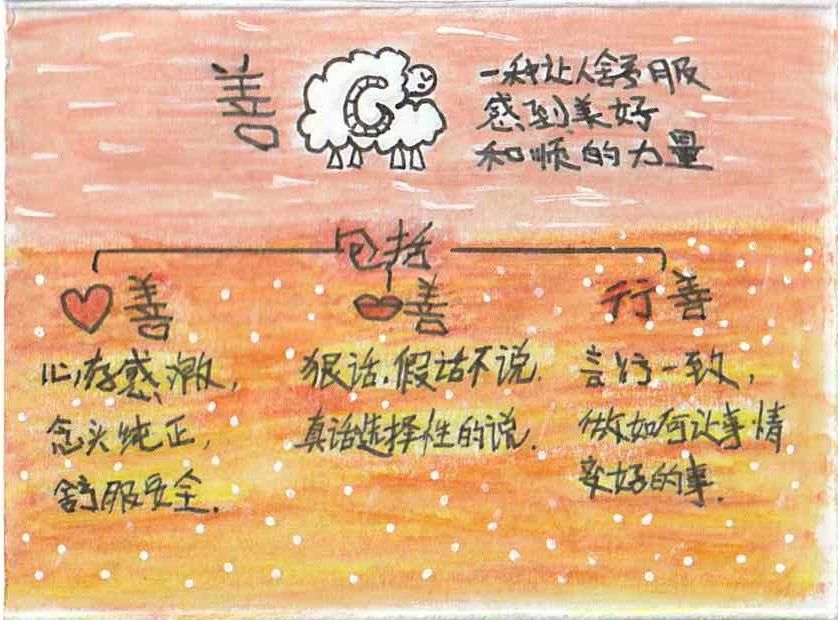 善
一种让人舒服
感到美好
和顺的力量
包括
善
善
行善
心存感激，
念头纯正，
舒服安全.
狠话.假话不说.
真话选择性的说.
言行一致，
做如何让事情
变好的事.